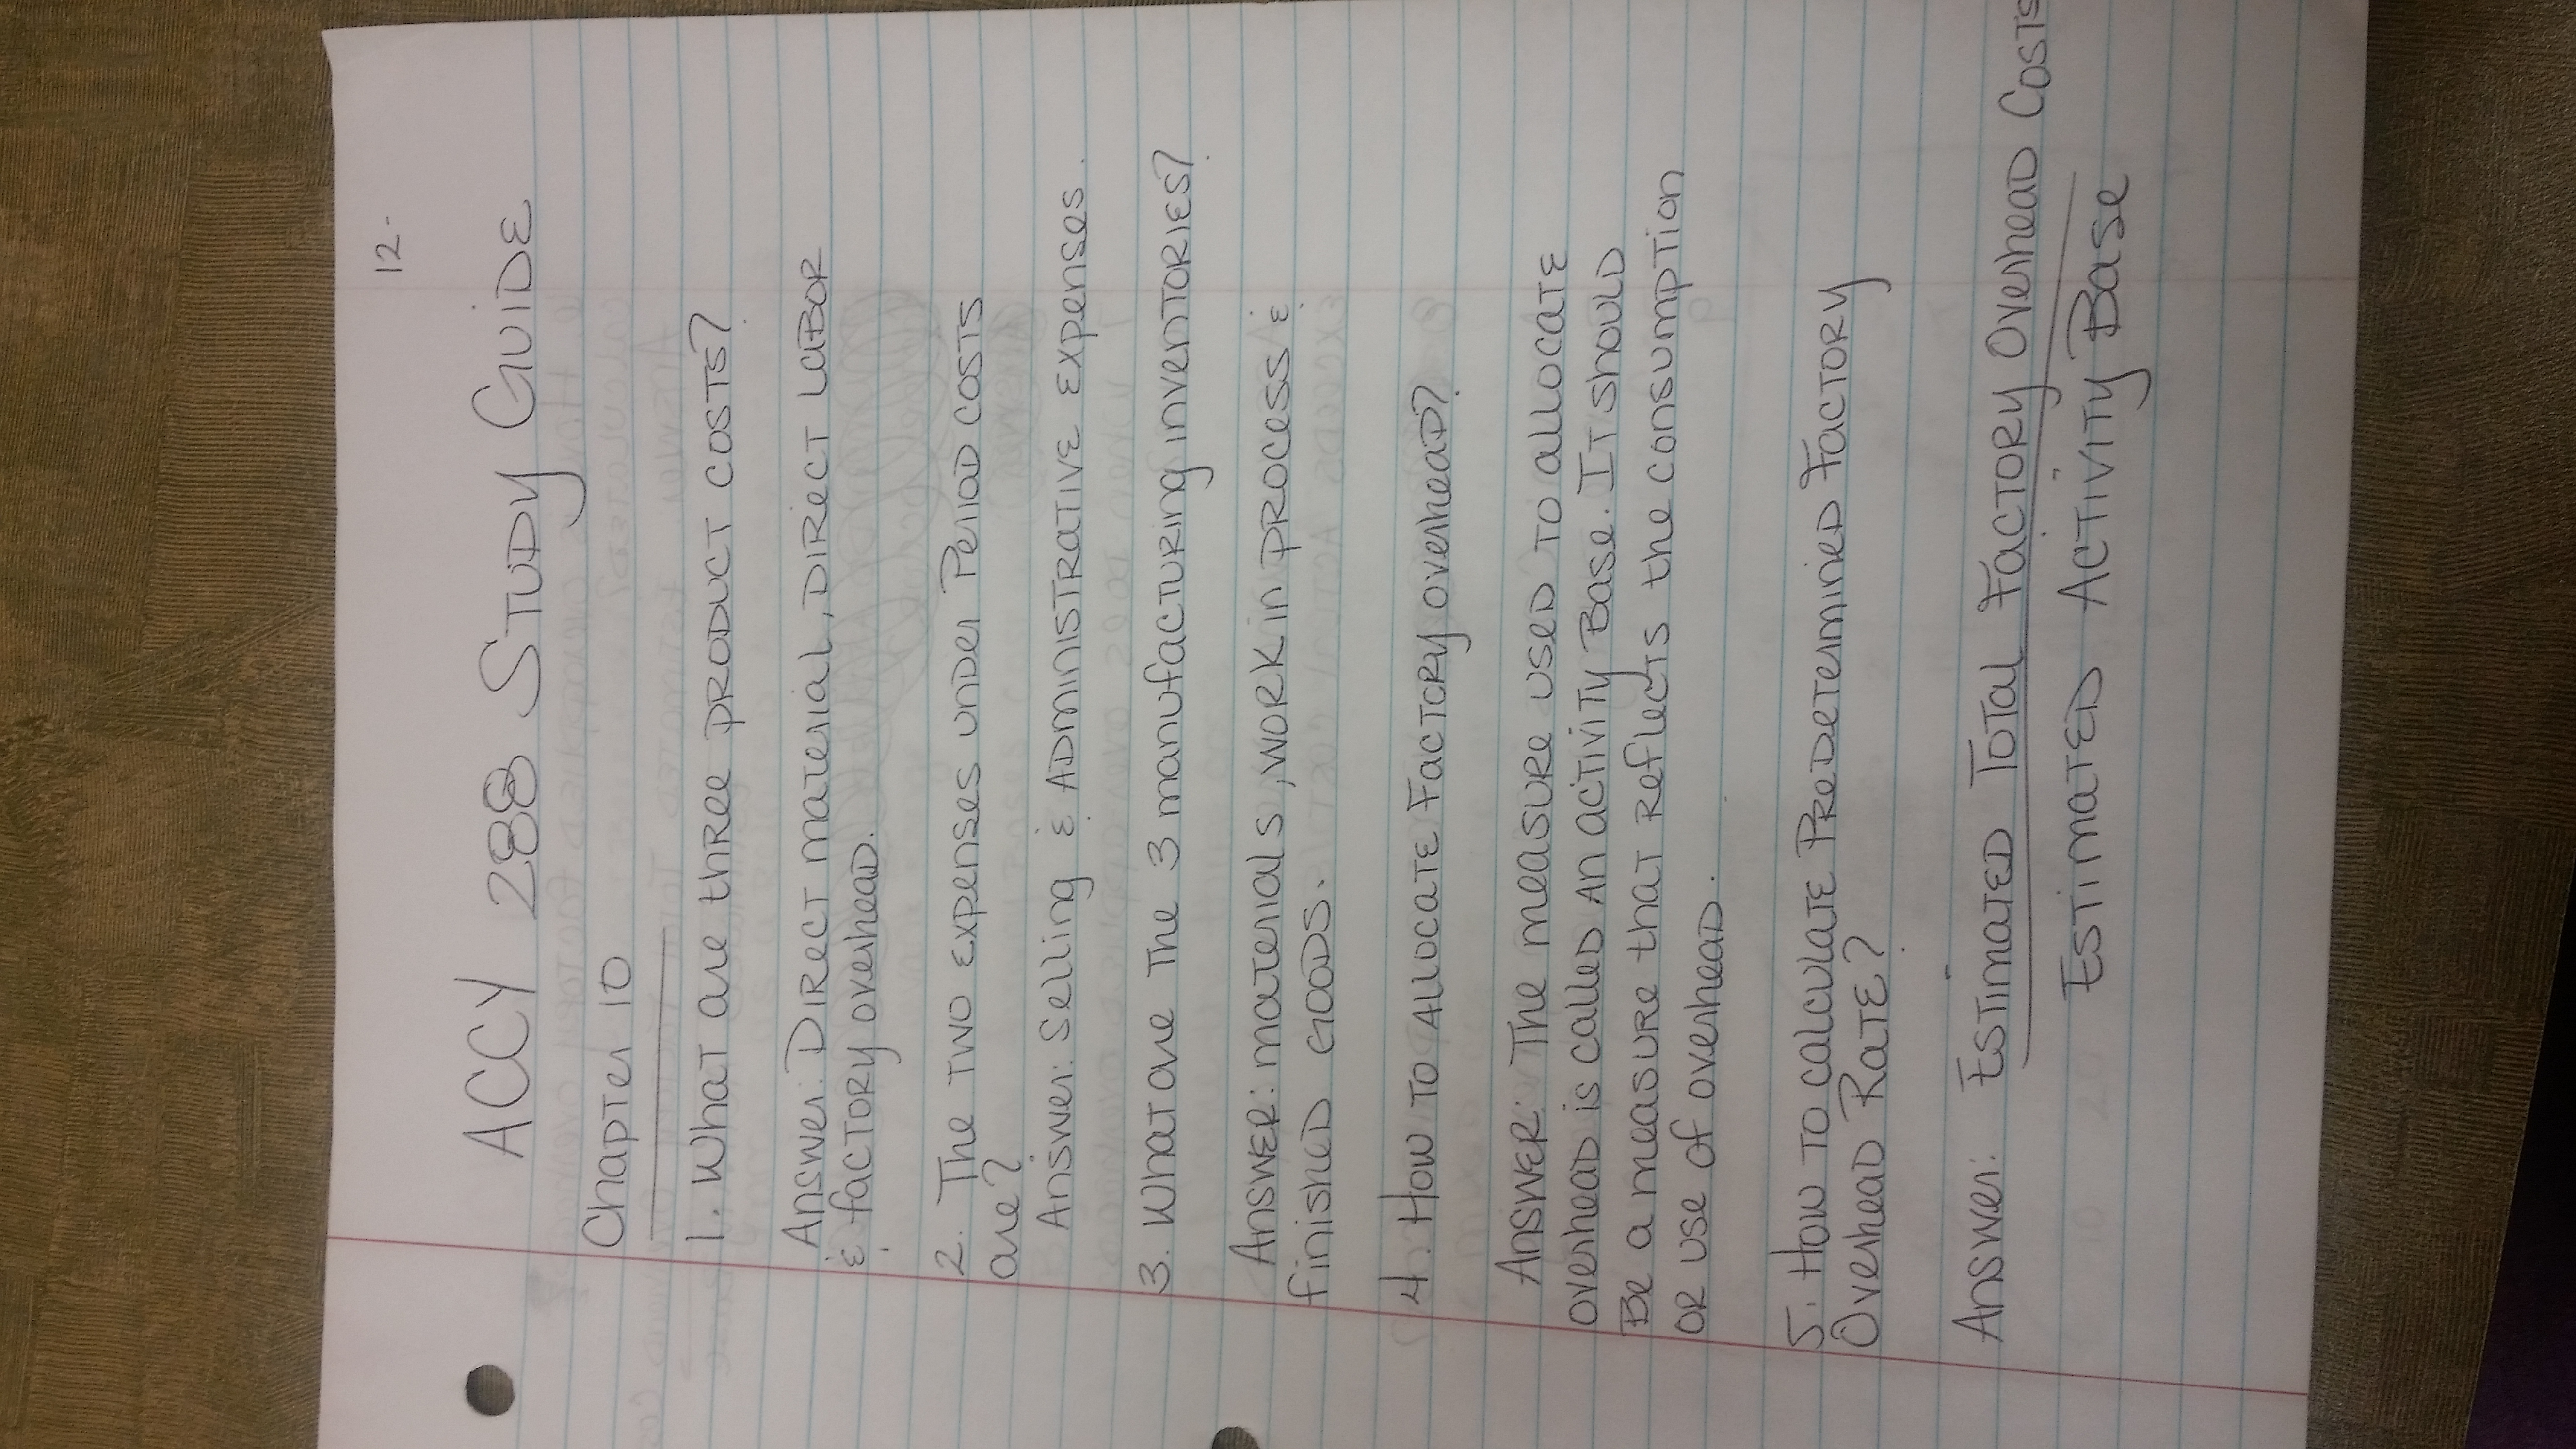 12.
ACCY 288 STUDY GUIDE
Chapter 10
1. What are three product costs?
Answer: Direct material, Direct labor
& factory overhead.
2. The two expenses under Period costs
are?
Answer: Selling & Administrative expenses.
3. What are the 3 manufacturing inventories?
Answer: materials, work in process &
finished goods.
4. How to allocate Factory overhead?
Answer: The measure used to allocate
overhead is called an activity Base. It should
Be a measure that reflects the consumption
or use of overhead.
5. How to calculate Predetermined Factory
Overhead Rate?
Answer: Estimated Total Factory Overhead Costs
Estimated Activity Base